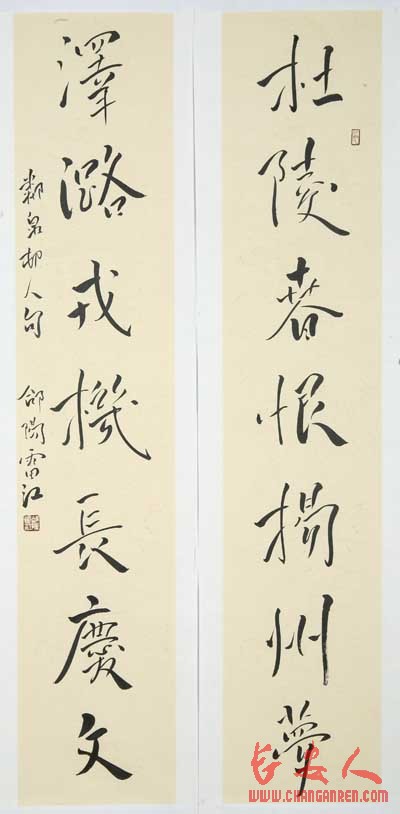 杜陵春恨揚州夢
澤潞戎機長慶文
泉邨人句 郃陽雷江
长安人
WWW.CHANGANREN.COM